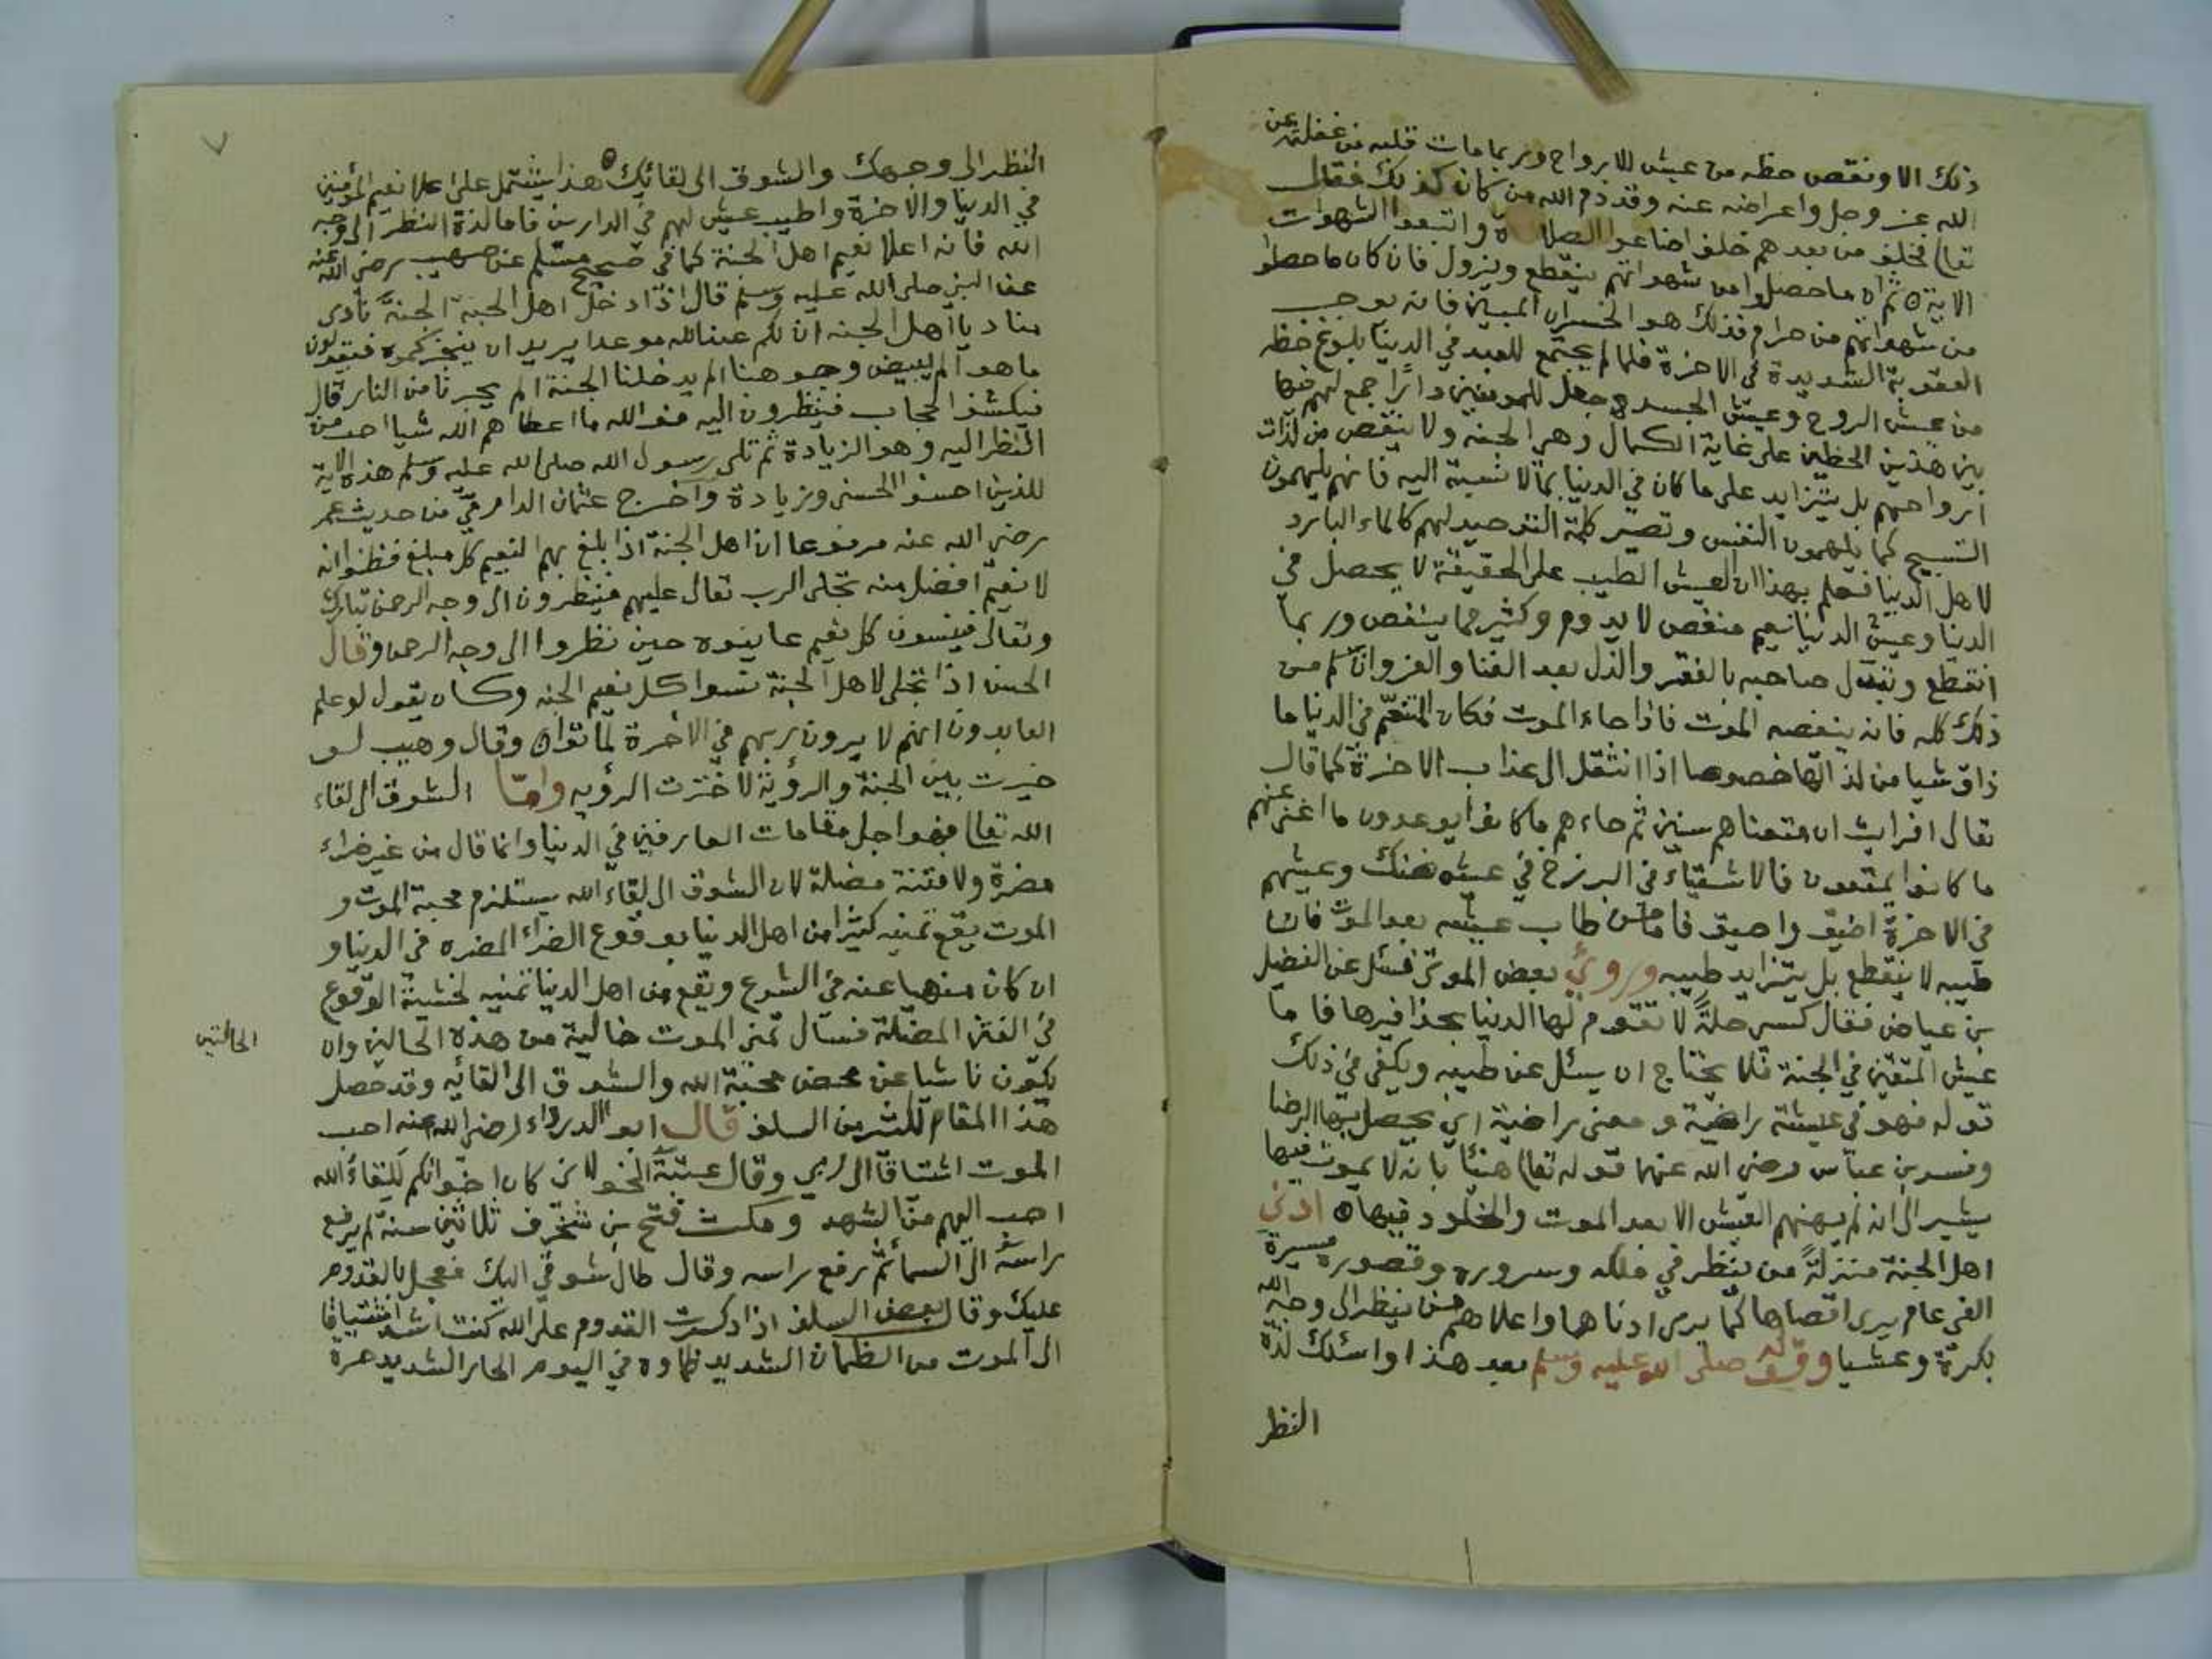 ذلك الا ونقص حظه من عيش الارواح وربما مات قلبه من غفلته عن
الله عز وجل واعراضه عنه وقد ذم الله من كان كذلك فقال
تعالى فخلف من بعدهم خلف اضاعوا الصلاة واتبعوا الشهوات
الاية ثم ان ما حصلوا من شهواتهم ينقطع ويزول فان كان ما حصلوا
من شهواتهم من حرام فذلك هو الخسران المبين فانه يوجب
العقوبة الشديدة في الاخرة فلما لم يجتمع للعبد في الدنيا بلوغ حظه
من عيش الروح وعيش الجسد وجعل للمومنين دارًا جمع لهم فيها
بين هذين الحظين على غاية الكمال وهي الجنه ولا ينقص من لذات
ارواحهم بل يتزايد على ما كان في الدنيا بما لا نسبة اليه فانهم يلهمون
التسبيح كما يلهمون النفس وتصير كلمة التوحيد لهم كالماء البارد
لاهل الدنيا فعلم بهذا ان العيش الطيب على الحقيقة لا يحصل في
الدنيا وعيش الدنيا نعيم منغص لا يدوم وكثير مما ينغص وربما
انقطع وتبدل صاحبه بالفقر والذل بعد الغنا والعز وان سلم من
ذلك كله فانه ينغصه الموت فاذا جاء الموت فكان المتنعم في الدنيا ما
ذاق شيا من لذاتها خصوصا اذا انتقل الى عذاب الاخرة كما قال
تعالى افرايت ان متعناهم سنين ثم جاءهم ما كانوا يوعدون ما اغنى عنهم
ما كانوا يمتعون فالاشقياء في البرزخ في عيش ضنك وعيشهم
في الاخرة اضيق واضيق فاما من طاب عيشه بعد الموت فان
طيبه لا ينقطع بل يتزايد طيبه وروئي بعض الموتى فسئل عن الفضيل
بن عياض فقال كسى حلةً لا تقوم لها الدنيا بحذافيرها فاما
عيش المتقين في الجنة فلا يحتاج ان يسئل عن طيبه ويكفي في ذلك
قوله فهو في عيشة راضية ومعنى راضية اي يحصل بها الرضا
وفسر بن عباس رضي الله عنهما قوله تعالى هنئا بانه لا يموت فيها
يشير الى انه لم يهنهم العيش الا بعد الموت والخلود فيها ادنى
اهل الجنة منزلةً من ينظر في ملكه وسروره وقصوره مسيرة
الفي عام يرى اقصاها كما يرى ادناها واعلاهم من ينظر الى وجه الله
بكرة وعشيا وقوله صلى الله عليه وسلم بعد هذا واسئلك لذة
النظر
٧
النظر الى وجهك والشوق الى لقائك هذا يشتمل على اعلا نعيم المؤمنين
في الدنيا والاخرة واطيب عيش لهم في الدارين فاما لذة النظر الى وجه
الله فانه اعلا نعيم اهل الجنة كما في صحيح مسلم عن صهيب رضي الله عنه
عن النبي صلى الله عليه وسلم قال اذا دخل اهل الجنة الجنة نادى
مناد يا اهل الجنه ان لكم عند الله موعدا يريد ان ينجزكموه فيقولون
ما هو الم يبيض وجوهنا الم يدخلنا الجنة الم يجيرنا من النار قال
فيكشف الحجاب فينظرون اليه فوالله ما اعطاهم الله شيا احب من
النظر اليه وهو الزيادة ثم تلى رسول الله صلى الله عليه وسلم هذه الاية
للذين احسنوا الحسنى وزيادة واخرج عثمان الدارمي من حديث عمر
رضي الله عنه مرفوعا ان اهل الجنة اذا بلغ بهم النعيم كل مبلغ فظنوا انه
لا نعيم افضل منه تجلى الرب تعالى عليهم فينظرون الى وجه الرحمن تبارك
وتعالى فينسون كل نعيم عاينوه حين نظروا الى وجه الرحمن وقال
الحسن اذا تجلى لاهل الجنة نسوا كل نعيم الجنه وكان يقول لو علم
العابدون انهم لا يرون ربهم في الاخرة لماتوا وقال وهيب لو
خيرت بين الجنة والرؤية لاخترت الرؤيه وامّا الشوق الى لقاء
الله تعالى فهو اجل مقامات العارفين في الدنيا وانما قال من غير ضراء
مضرة ولا فتنة مضلة لان الشوق الى لقاء الله يستلزم محبة الموت و
الموت يقع تمنيه كثيرا من اهل الدنيا بوقوع الضراء المضره في الدنيا و
ان كان منهيا عنه في الشرع ويقع من اهل الدنيا تمنيه لخشية الوقوع
في الفتن المضلة فسال تمنى الموت خالية من هذه الحالين وان
الحالتين
يكون ناشيا عن محض محبة الله والشوق الى لقائه وقد حصل
هذا المقام لكثير من السلف قال ابو الدرداء رضي الله عنه احب
الموت اشتاقا الى ربي وقال عتبة الخولاني كان اخوانكم للقاء الله
احب اليهم من الشهد ومكث فتح بن شخرف ثلاثين سنة لم يرفع
راسه الى السما ثم رفع راسه وقال طال شوقي اليك فعجل بالقدوم
عليك وقال بعض السلف اذا ذكرت القدوم على الله كنت اشد اشتياقا
الى الموت من الظمان الشديد ظماوه في اليوم الحار الشديد حره